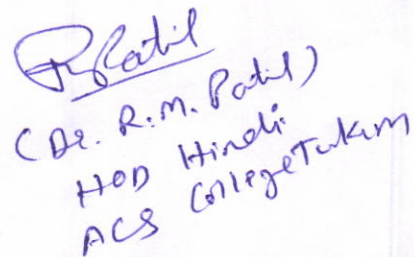 RPatil
(Dr. R.M. Patil)
HOD Hindi
ACS College Tukum